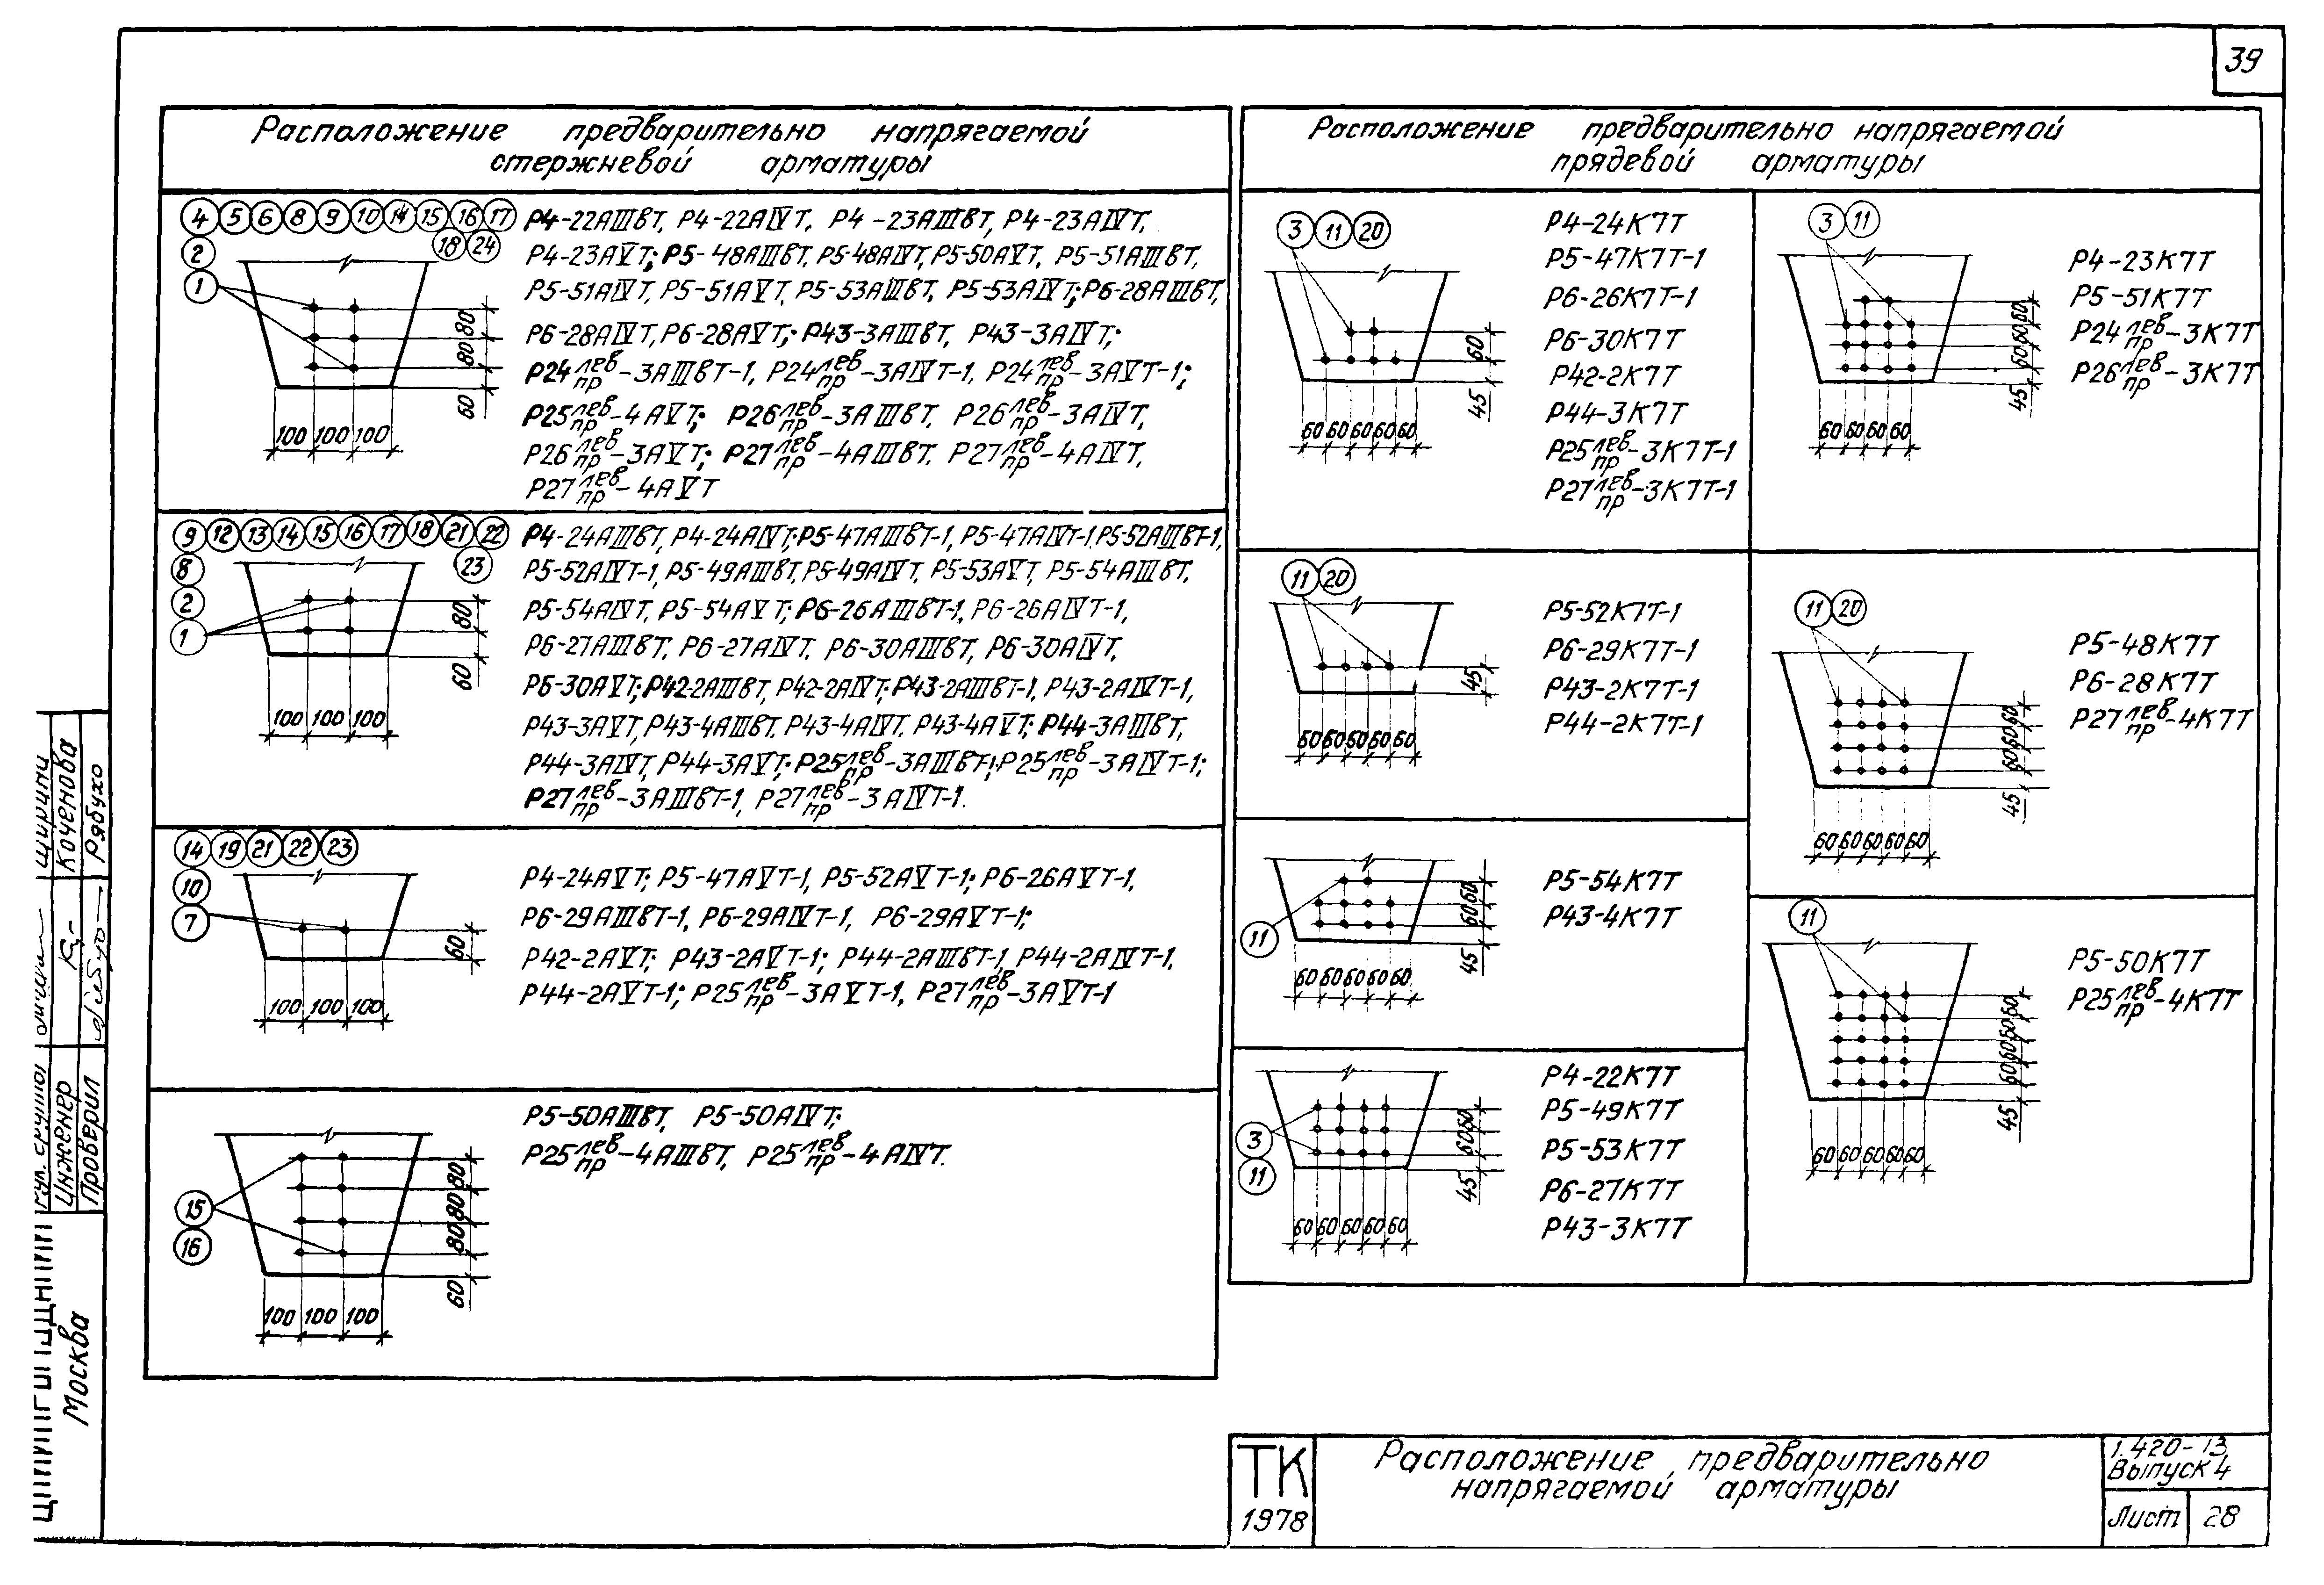 39
Расположение предварительно напрягаемой
стержневой арматуры
4 5 6 8 9 10 14 15 16 17
18 24
2
1
Р4-22АIIIвТ, Р4-22АIVТ, Р4-23АIIIвТ, Р4-23АIVТ,
Р4-23АVТ; Р5-48АIIIвТ, Р5-48АIVТ, Р5-50АVТ, Р5-51АIIIвТ,
Р5-51АIVТ, Р5-51АVТ, Р5-53АIIIвТ, Р5-53АIVТ; Р6-28АIIIвТ,
Р6-28АIVТ, Р6-28АVТ; Р43-3АIIIвТ, Р43-3АIVТ;
Р24лев/пр-3АIIIвТ-1, Р24лев/пр-3АIVТ-1, Р24лев/пр-3АVТ-1;
Р25лев/пр-4АVТ; Р26лев/пр-3АIIIвТ, Р26лев/пр-3АIVТ,
Р26лев/пр-3АVТ; Р27лев/пр-4АIIIвТ, Р27лев/пр-4АIVТ,
Р27лев/пр-4АVТ
80
80
60
100 100 100
9 12 13 14 15 16 17 18 21 22
23
8
2
1
Р4-24АIIIвТ, Р4-24АIVТ; Р5-47АIIIвТ-1, Р5-47АIVТ-1, Р5-52АIIIвТ-1,
Р5-52АIVТ-1, Р5-49АIIIвТ, Р5-49АIVТ, Р5-53АVТ, Р5-54АIIIвТ,
Р5-54АIVТ, Р5-54АVТ; Р6-26АIIIвТ-1, Р6-26АIVТ-1,
Р6-27АIIIвТ, Р6-27АIVТ, Р6-30АIIIвТ, Р6-30АIVТ,
Р6-30АVТ; Р42-2АIIIвТ, Р42-2АIVТ; Р43-2АIIIвТ-1, Р43-2АIVТ-1,
Р43-3АVТ, Р43-4АIIIвТ, Р43-4АIVТ, Р43-4АVТ; Р44-3АIIIвТ,
Р44-3АIVТ, Р44-3АVТ; Р25лев/пр-3АIIIвТ-1; Р25лев/пр-3АIVТ-1;
Р27лев/пр-3АIIIвТ-1, Р27лев/пр-3АIVТ-1.
80
60
100 100 100
14 19 21 22 23
10
7
Р4-24АVТ; Р5-47АVТ-1, Р5-52АVТ-1; Р6-26АVТ-1,
Р6-29АIIIвТ-1, Р6-29АIVТ-1, Р6-29АVТ-1;
Р42-2АVТ; Р43-2АVТ-1; Р44-2АIIIвТ-1, Р44-2АIVТ-1,
Р44-2АVТ-1; Р25лев/пр-3АVТ-1, Р27лев/пр-3АVТ-1
60
100 100 100
Р5-50АIIIвТ, Р5-50АIVТ;
Р25лев/пр-4АIIIвТ, Р25лев/пр-4АIVТ.
15
16
80
80
80
60
100 100 100
Расположение предварительно напрягаемой
прядевой арматуры
3 11 20
Р4-24К7Т
Р5-47К7Т-1
Р6-26К7Т-1
Р6-30К7Т
Р42-2К7Т
Р44-3К7Т
Р25лев/пр-3К7Т-1
Р27лев/пр-3К7Т-1
60
45
60 60 60 60 60
11 20
Р5-52К7Т-1
Р6-29К7Т-1
Р43-2К7Т-1
Р44-2К7Т-1
45
60 60 60 60 60
11
Р5-54К7Т
Р43-4К7Т
60 60
45
60 60 60 60 60
3
11
Р4-22К7Т
Р5-49К7Т
Р5-53К7Т
Р6-27К7Т
Р43-3К7Т
60 60
45
60 60 60 60 60
3 11
Р4-23К7Т
Р5-51К7Т
Р24лев/пр-3К7Т
Р26лев/пр-3К7Т
60 60 60
45
60 60 60 60
11 20
Р5-48К7Т
Р6-28К7Т
Р27лев/пр-4К7Т
60 60 60
45
60 60 60 60 60
11
Р5-50К7Т
Р25лев/пр-4К7Т
60 60 60 60
45
60 60 60 60 60
ТК
1978
Расположение предварительно
напрягаемой арматуры
1.420-13
Выпуск 4
Лист 28
Инженер Коченова
Проверил Рябухо
Москва